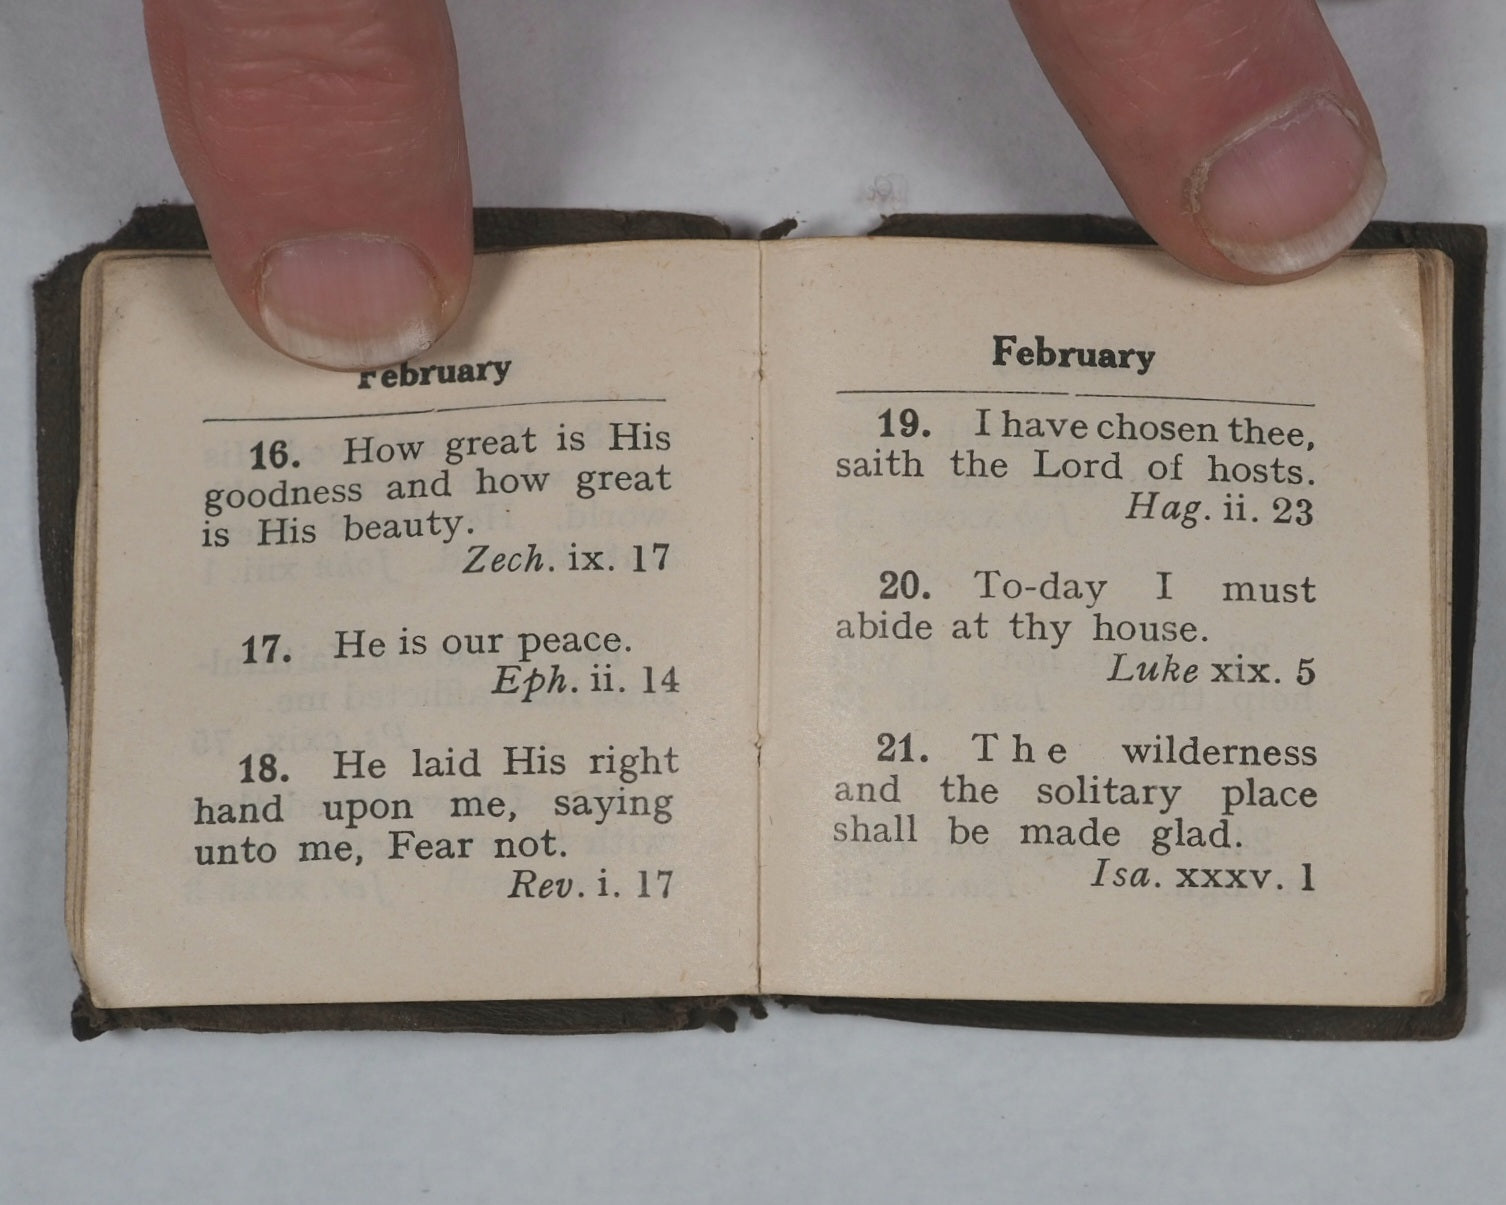 February
16. How great is His
goodness and how great
is His beauty.
Zech. ix. 17
17. He is our peace.
Eph. ii. 14
18. He laid His right
hand upon me, saying
unto me, Fear not.
Rev. i. 17
February
19. I have chosen thee,
saith the Lord of hosts.
Hag. ii. 23
20. To-day I must
abide at thy house.
Luke xix. 5
21. The wilderness
and the solitary place
shall be made glad.
Isa. xxxv. 1